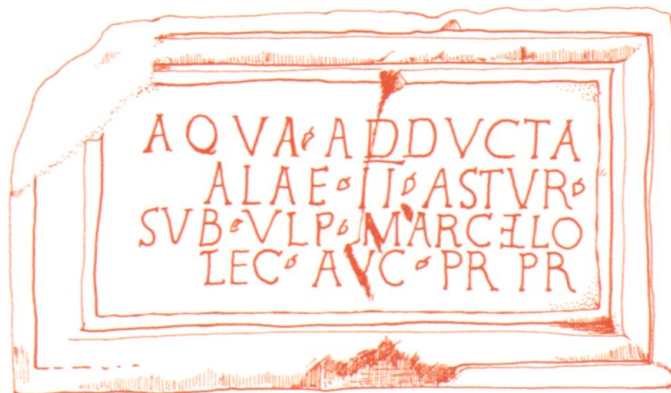 AQVA·ADDVCTA
ALAE·II·ASTVR·
SVB·VLP·MARCELLO
LEC·AVC·PR PR